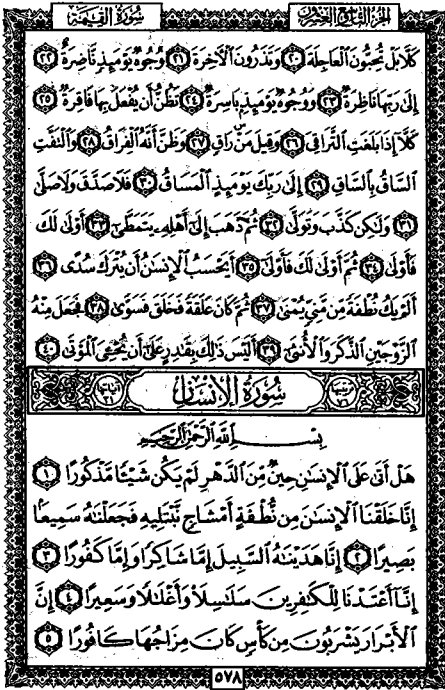 الجزء التاسع والعشرون
سورة القيمة
كَلَّا بَلْ تُحِبُّونَ ٱلْعَاجِلَةَ ٢٠ وَتَذَرُونَ ٱلْآخِرَةَ ٢١ وُجُوهٌ يَوْمَئِذٍ نَّاضِرَةٌ ٢٢
إِلَىٰ رَبِّهَا نَاظِرَةٌ ٢٣ وَوُجُوهٌ يَوْمَئِذٍۭ بَاسِرَةٌ ٢٤ تَظُنُّ أَن يُفْعَلَ بِهَا فَاقِرَةٌ ٢٥
كَلَّآ إِذَا بَلَغَتِ ٱلتَّرَاقِىَ ٢٦ وَقِيلَ مَنْ رَاقٍ ٢٧ وَظَنَّ أَنَّهُ ٱلْفِرَاقُ ٢٨ وَٱلْتَفَّتِ
ٱلسَّاقُ بِٱلسَّاقِ ٢٩ إِلَىٰ رَبِّكَ يَوْمَئِذٍ ٱلْمَسَاقُ ٣٠ فَلَا صَدَّقَ وَلَا صَلَّىٰ
٣١ وَلَٰكِن كَذَّبَ وَتَوَلَّىٰ ٣٢ ثُمَّ ذَهَبَ إِلَىٰٓ أَهْلِهِۦ يَتَمَطَّىٰٓ ٣٣ أَوْلَىٰ لَكَ
فَأَوْلَىٰ ٣٤ ثُمَّ أَوْلَىٰ لَكَ فَأَوْلَىٰٓ ٣٥ أَيَحْسَبُ ٱلْإِنسَٰنُ أَن يُتْرَكَ سُدًى ٣٦
أَلَمْ يَكُ نُطْفَةً مِّن مَّنِىٍّ يُمْنَىٰ ٣٧ ثُمَّ كَانَ عَلَقَةً فَخَلَقَ فَسَوَّىٰ ٣٨ فَجَعَلَ مِنْهُ
ٱلزَّوْجَيْنِ ٱلذَّكَرَ وَٱلْأُنثَىٰٓ ٣٩ أَلَيْسَ ذَٰلِكَ بِقَٰدِرٍ عَلَىٰٓ أَن يُحْۦِىَ ٱلْمَوْتَىٰ ٤٠
سُورَةُ الإِنسَانِ
بِسْمِ ٱللَّهِ ٱلرَّحْمَٰنِ ٱلرَّحِيمِ
هَلْ أَتَىٰ عَلَى ٱلْإِنسَٰنِ حِينٌ مِّنَ ٱلدَّهْرِ لَمْ يَكُن شَيْـًٔا مَّذْكُورًا ١
إِنَّا خَلَقْنَا ٱلْإِنسَٰنَ مِن نُّطْفَةٍ أَمْشَاجٍ نَّبْتَلِيهِ فَجَعَلْنَٰهُ سَمِيعًۢا
بَصِيرًا ٢ إِنَّا هَدَيْنَٰهُ ٱلسَّبِيلَ إِمَّا شَاكِرًا وَإِمَّا كَفُورًا ٣
إِنَّآ أَعْتَدْنَا لِلْكَٰفِرِينَ سَلَٰسِلَا۟ وَأَغْلَٰلًا وَسَعِيرًا ٤ إِنَّ
ٱلْأَبْرَارَ يَشْرَبُونَ مِن كَأْسٍ كَانَ مِزَاجُهَا كَافُورًا ٥
٥٧٨